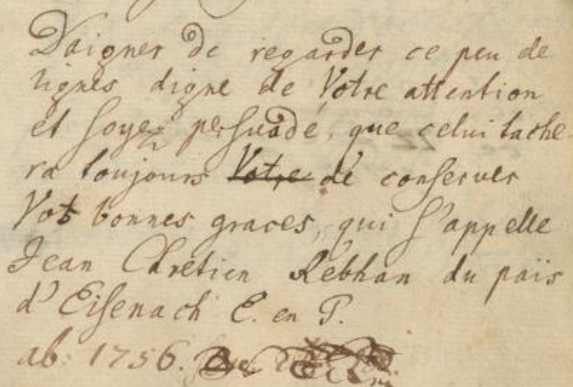 Daigner de regarder ce peu de
lignes digne de Votre attention
et soyez persuadé, que celui tache-
ra toujours Votre de conserver
Vos bonnes graces, qui s'appelle
Jean Chrétien Rebhan du païs
d'Eisenach E. en T.
ab. 1756.